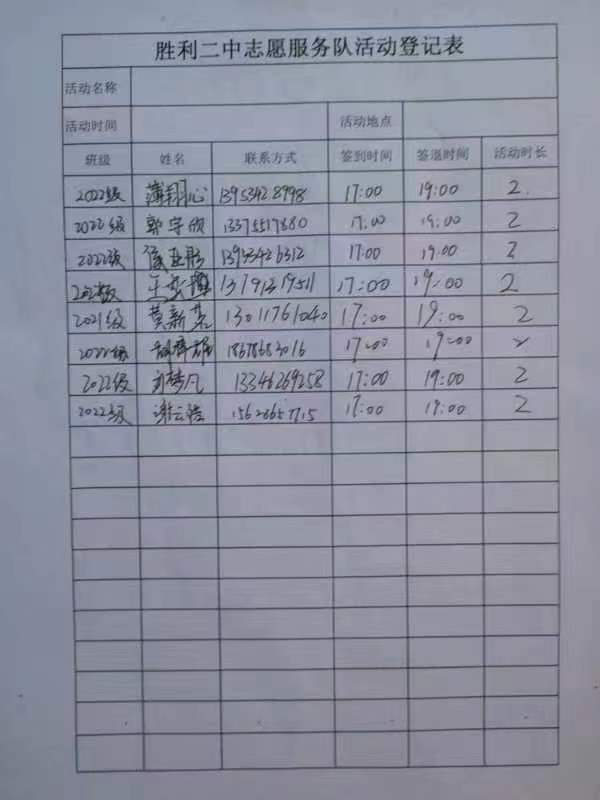 胜利二中志愿服务队活动登记表
活动名称
活动时间 活动地点
班级 姓名 联系方式 签到时间 签退时间 活动时长
2022级 蒲翔心 13953428998 17:00 19:00 2
2022级 郭宇欣 13375517880 17:00 19:00 2
2022级 17:00 19:00 2
17:00 19:00 2
2021级 黄新 13011761040 17:00 19:00 2
2022级 17:00 19:00 2
2022级 刘梦凡 13346269258 17:00 19:00 2
2022级 谢云浩 17:00 19:00 2